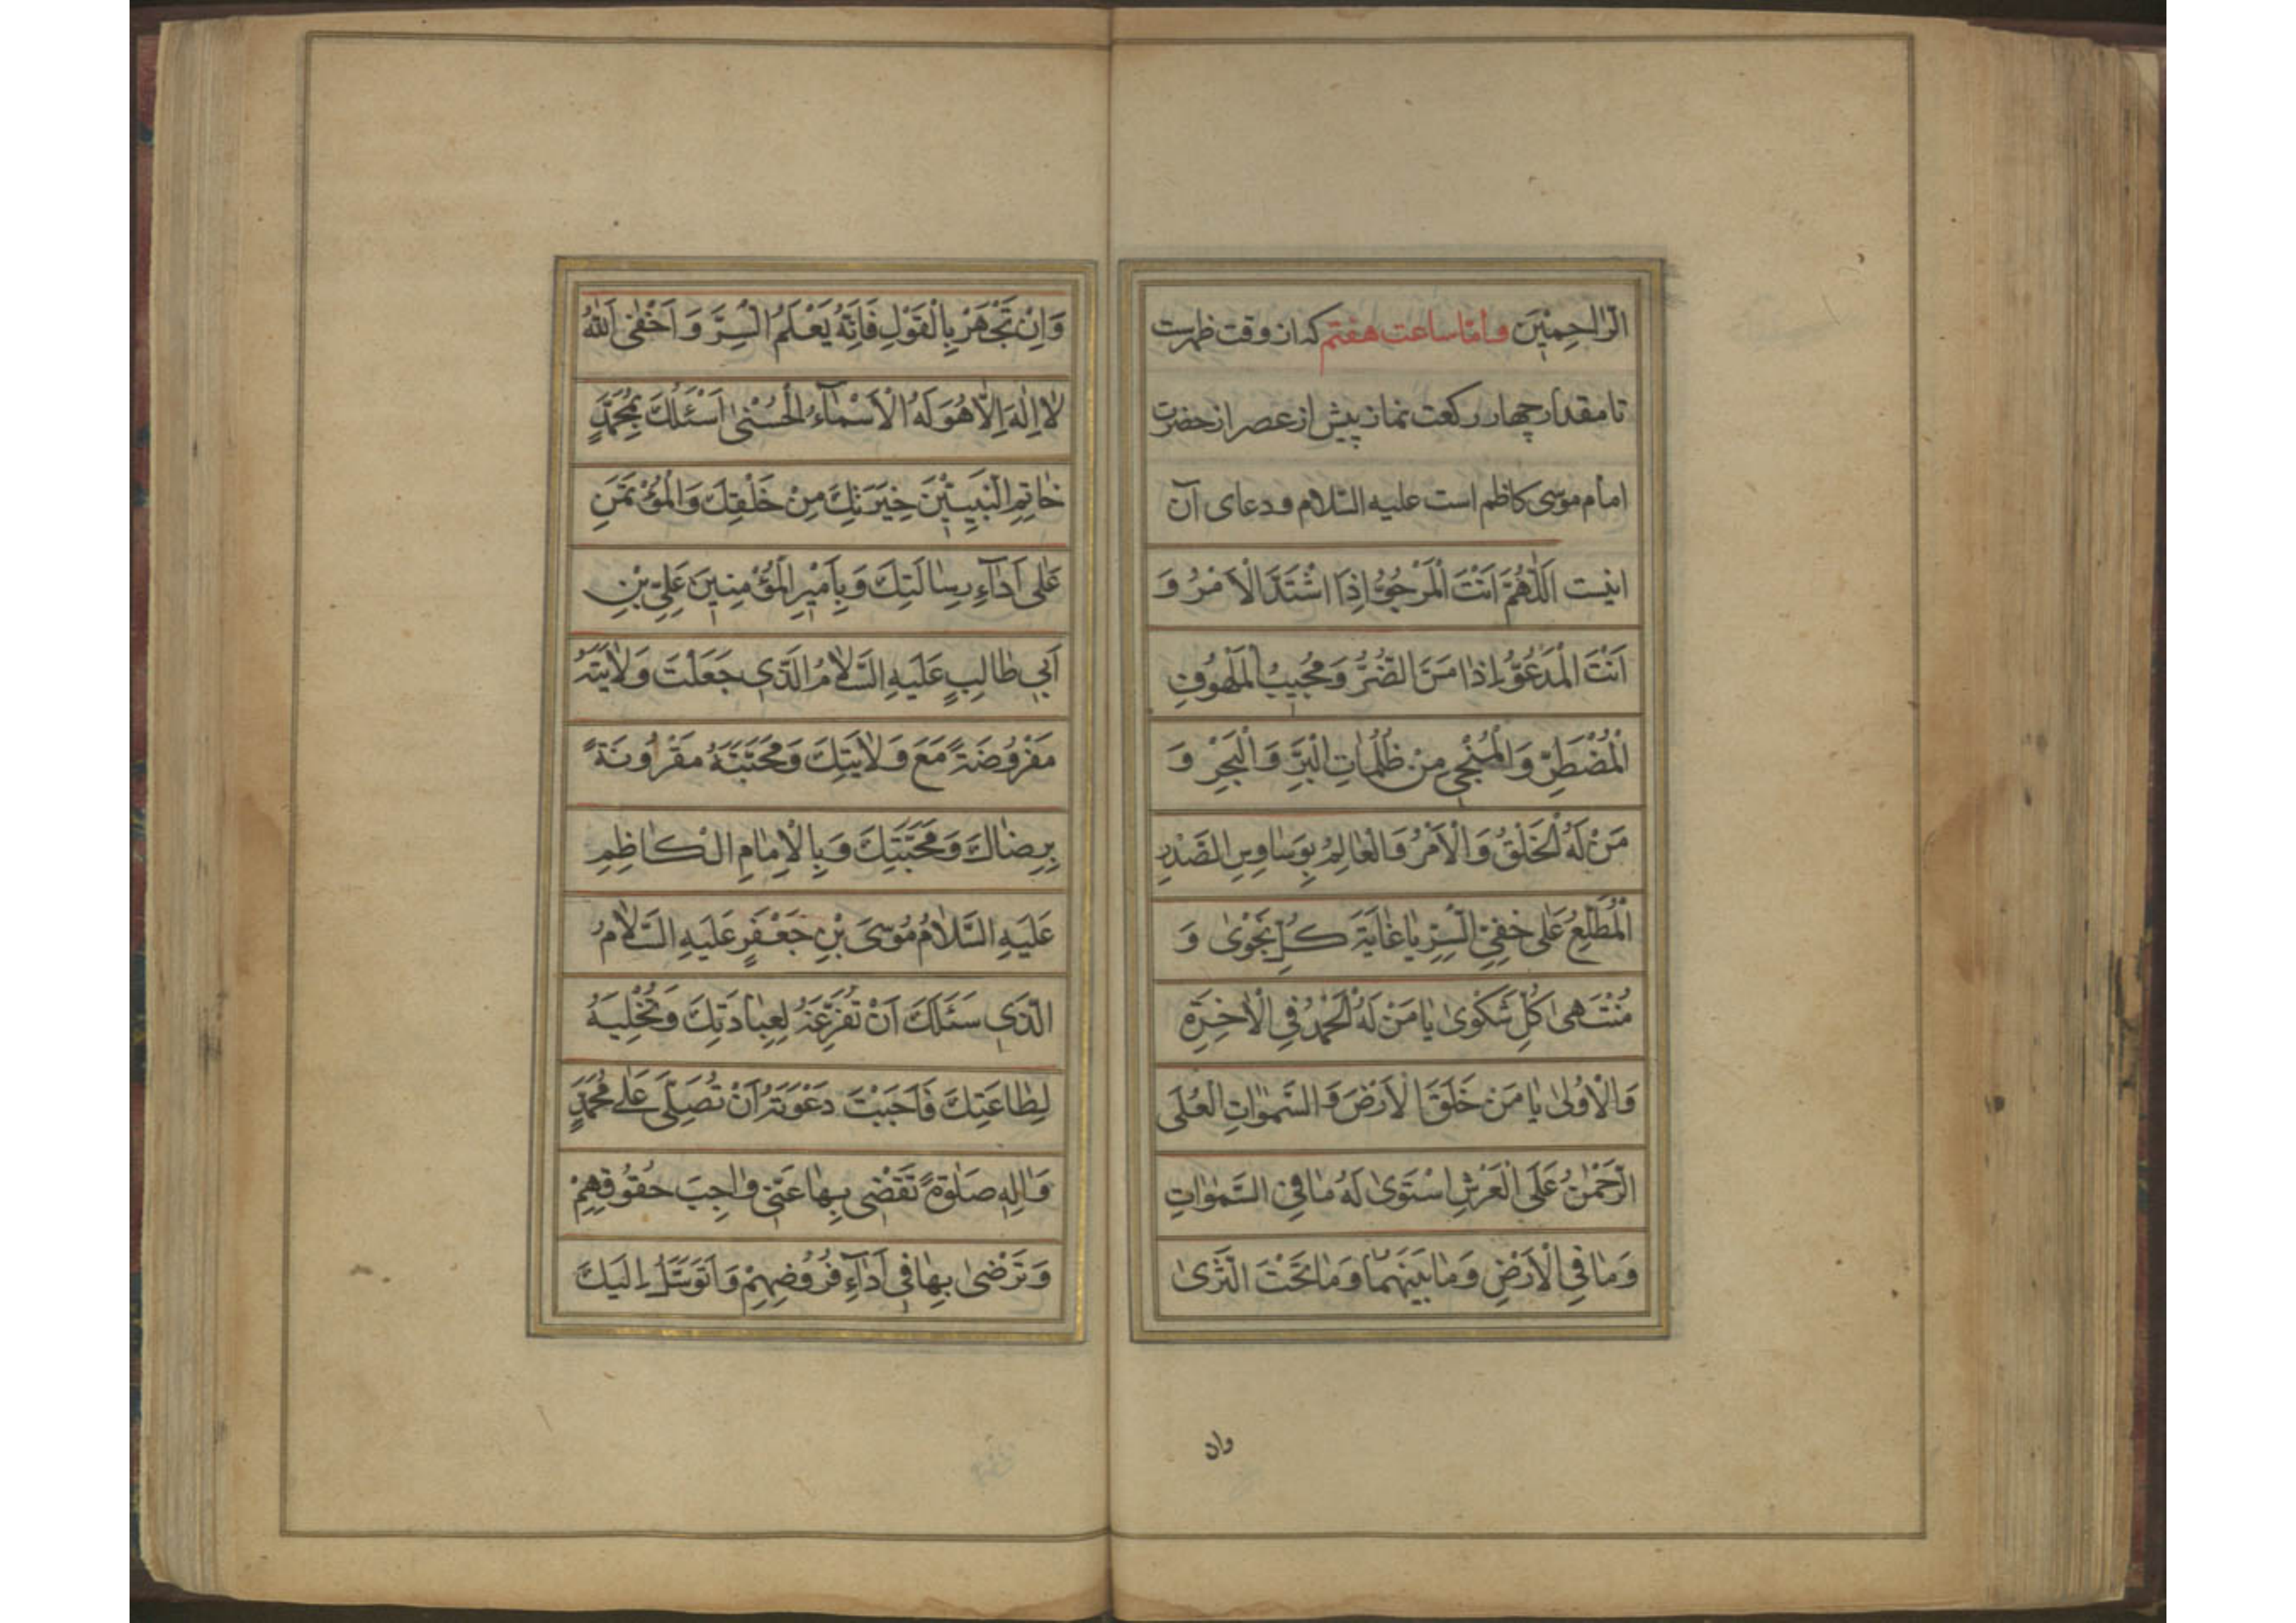 الرّاحِمِينَ وامّا ساعت هفتم كه از وقت ظهرست
تا مقدار چهار ركعت نماز پيش از عصر از حضرت
امام موسى كاظم است عليه السّلام و دعاى آن
اينست اَللّٰهُمَّ اَنْتَ الْمَرْجُوُّ اِذَا اشْتَدَّ الْاَمْرُ وَ
اَنْتَ الْمَدْعُوُّ اِذٰا مَسَّ الضُّرُّ وَ مُجِيبُ الْمَلْهُوفِ
الْمُضْطَرِّ وَ الْمُنْجِي مِنْ ظُلُمٰاتِ الْبَرِّ وَ الْبَحْرِ وَ
مَنْ لَهُ الْخَلْقُ وَ الْاَمْرُ وَ الْعٰالِمُ بِوَسٰاوِسِ الصَّدْرِ
الْمُطَّلِعُ عَلٰى خَفِيِّ السِّرِّ يٰا غٰايَةَ كُلِّ نَجْوٰى وَ
مُنْتَهىٰ كُلِّ شَكْوٰى يٰا مَنْ لَهُ الْحَمْدُ فِي الْاٰخِرَةِ
وَ الْاُولٰى يٰا مَنْ خَلَقَ الْاَرْضَ وَ السَّمٰوٰاتِ الْعُلَى
الرَّحْمٰنُ عَلَى الْعَرْشِ اسْتَوٰى لَهُ مٰا فِي السَّمٰوٰاتِ
وَ مٰا فِي الْاَرْضِ وَ مٰا بَيْنَهُمٰا وَ مٰا تَحْتَ الثَّرٰى
وان
وَ اِنْ تَجْهَرْ بِالْقَوْلِ فَاِنَّهُ يَعْلَمُ السِّرَّ وَ اَخْفٰى اَللّٰهُ
لٰا اِلٰهَ اِلّٰا هُوَ لَهُ الْاَسْمٰآءُ الْحُسْنٰى اَسْئَلُكَ بِمُحَمَّدٍ
خٰاتِمِ النَّبِيِّينَ خِيَرَتِكَ مِنْ خَلْقِكَ وَ الْمُؤْتَمَنِ
عَلٰى اَدٰآءِ رِسٰالَتِكَ وَ بِاَمِيرِ الْمُؤْمِنِينَ عَلِيِّ بْنِ
اَبِي طٰالِبٍ عَلَيْهِ السَّلٰامُ الَّذِي جَعَلْتَ وَلٰايَتَهُ
مَفْرُوضَةً مَعَ وَلٰايَتِكَ وَ مَحَبَّتَهُ مَقْرُونَةً
بِرِضٰاكَ وَ مَحَبَّتِكَ وَ بِالْاِمٰامِ الْكٰاظِمِ
عَلَيْهِ السَّلٰامُ مُوسَى بْنِ جَعْفَرٍ عَلَيْهِ السَّلٰامُ
الَّذِي سَئَلَكَ اَنْ تُفَرِّغَهُ لِعِبٰادَتِكَ وَ تُخْلِيَهُ
لِطٰاعَتِكَ فَاَجَبْتَ دَعْوَتَهُ اَنْ تُصَلِّيَ عَلٰى مُحَمَّدٍ
وَ اٰلِهِ صَلٰوةً تَقْضِي بِهٰا عَنِّي وٰاجِبَ حُقُوقِهِمْ
وَ تَرْضٰى بِهٰا فِي اَدٰآءِ فُرُوضِهِمْ وَ اَتَوَسَّلُ اِلَيْكَ